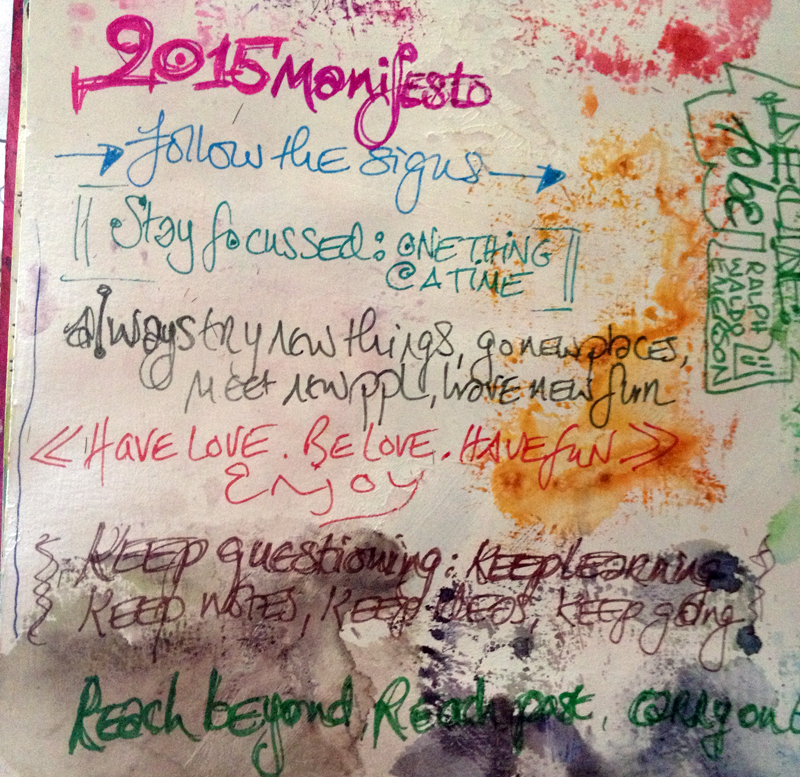 2015 Manifesto
Follow the signs
Stay focussed: ONE THING
@ A TIME
always try new things, go new places,
meet new ppl, have new fun
HAVE LOVE. BE LOVE. HAVE fUN
Enjoy
KEEP questioning: KEEP learning
KEEP NOTES, KEEP IDEAS, KEEP going
REach beyond, REach past, carry out
TO BE
RALPH
WALDO
EMERSON